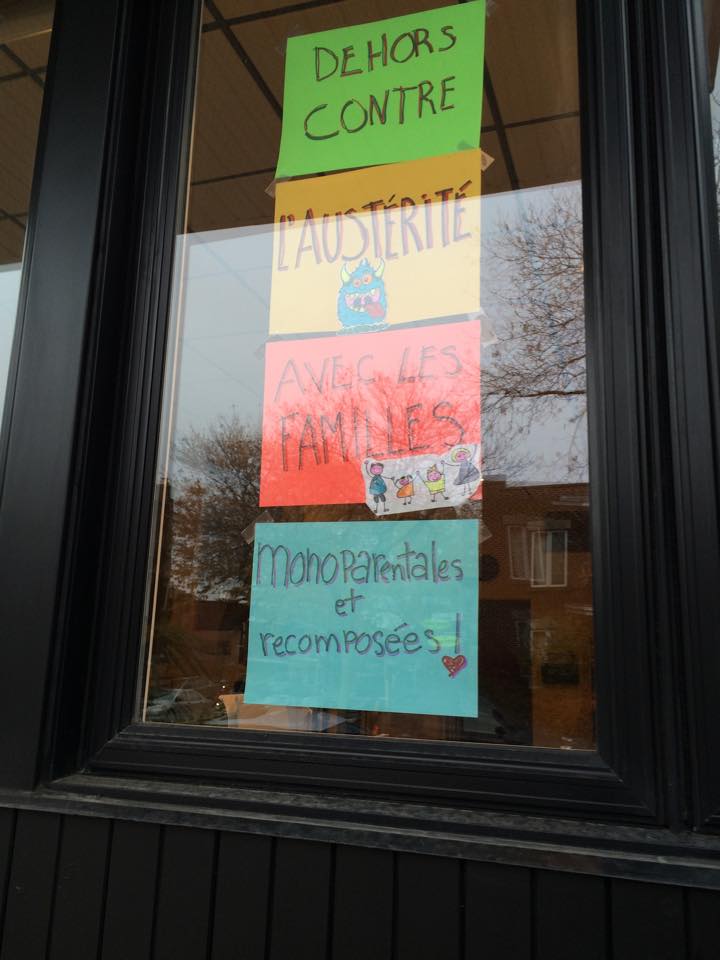 DEHORS
CONTRE
L'AUSTÉRITÉ
AVEC LES
FAMILLES
monoparentales
et
recomposées !